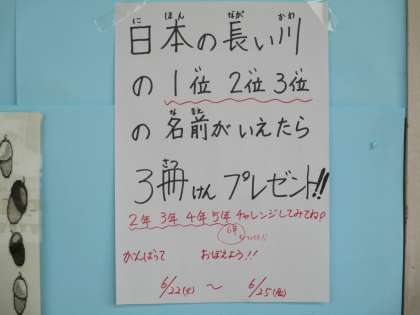 日本の長い川
の1位 2位 3位
の名前がいえたら
3冊けん プレゼント!!
2年 3年 4年 5年 チャレンジしてみてね♪
6年
がんばって おぼえよう!!
6/22(火) ～ 6/25(金)